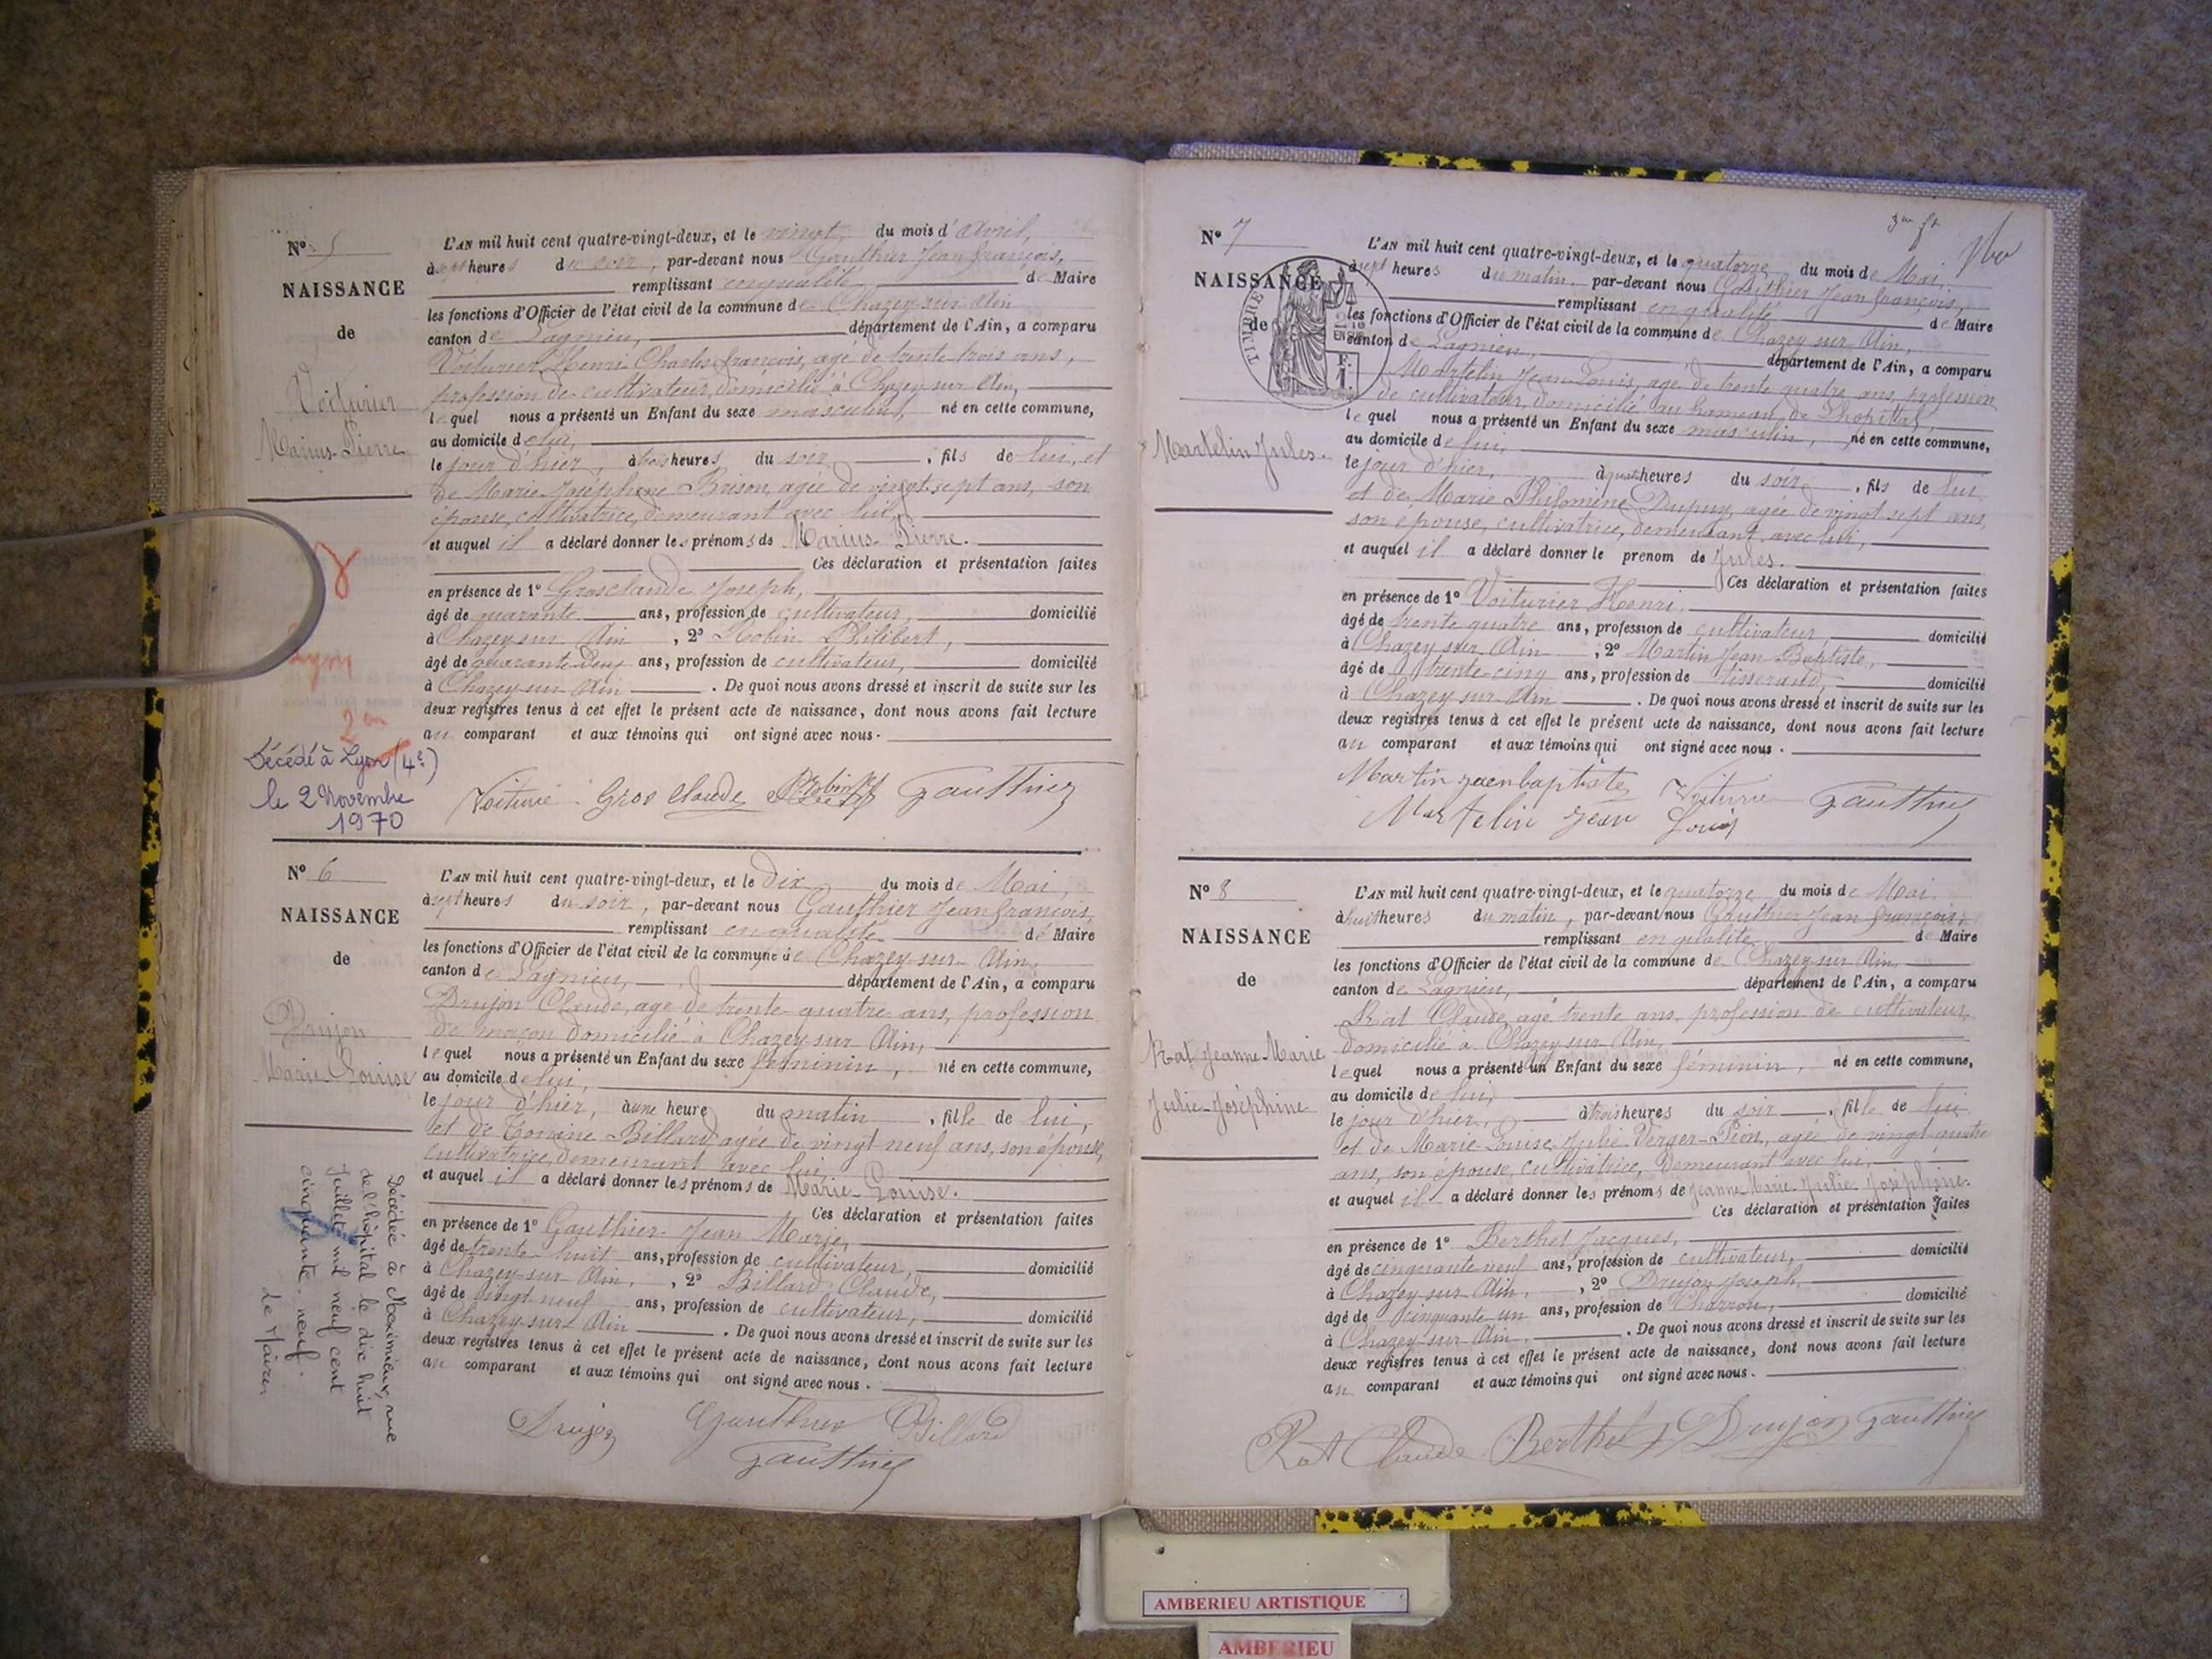 N° 5
NAISSANCE
de
Voiturier
Marius-Pierre
L'AN mil huit cent quatre-vingt-deux, et le vingt du mois d'avril,
à sept heures du soir, par-devant nous Gauthier Jean françois,
remplissant en qualité de Maire
les fonctions d'Officier de l'état civil de la commune de Chazey sur Ain
canton de Lagnieu, département de l'Ain, a comparu
Voiturier Henri Charles françois, agé de trente trois ans,
profession de cultivateur, domicilié à Chazey sur Ain,
lequel nous a présenté un Enfant du sexe masculin, né en cette commune,
au domicile de lui,
le jour d'hier, à trois heures du soir, fils de lui, et
de Marie Joséphine Brison, agée de vingt sept ans, son
épouse, cultivatrice, demeurant avec lui,
et auquel il a déclaré donner les prénoms de Marius-Pierre.
Ces déclaration et présentation faites
en présence de 1° Grosclaude Joseph,
âgé de quarante ans, profession de cultivateur, domicilié
à Chazey sur Ain, 2° Robin Philibert,
âgé de quarante deux ans, profession de cultivateur, domicilié
à Chazey sur Ain. De quoi nous avons dressé et inscrit de suite sur les
deux registres tenus à cet effet le présent acte de naissance, dont nous avons fait lecture
au comparant et aux témoins qui ont signé avec nous.
Décédé à Lyon (4e)
le 2 Novembre
1970
Gros Claude Gauthier
N° 6
NAISSANCE
de
Drujon
Marie Louise
L'AN mil huit cent quatre-vingt-deux, et le dix du mois de Mai,
à sept heures du soir, par-devant nous Gauthier Jean françois,
remplissant en qualité de Maire
les fonctions d'Officier de l'état civil de la commune de Chazey-sur-Ain,
canton de Lagnieu, département de l'Ain, a comparu
Drujon Claude, agé de trente quatre ans, profession
de maçon domicilié à Chazey sur Ain,
lequel nous a présenté un Enfant du sexe féminin, né en cette commune,
au domicile de lui,
le jour d'hier, à une heure du matin, fille de lui,
et de Billard agée de vingt neuf ans, son épouse,
cultivatrice, demeurant avec lui,
et auquel il a déclaré donner les prénoms de Marie-Louise.
Ces déclaration et présentation faites
en présence de 1° Gauthier Jean Marie,
âgé de trente huit ans, profession de cultivateur, domicilié
à Chazey-sur Ain, 2° Billard Claude,
âgé de vingt neuf ans, profession de cultivateur, domicilié
à Chazey-sur Ain. De quoi nous avons dressé et inscrit de suite sur les
deux registres tenus à cet effet le présent acte de naissance, dont nous avons fait lecture
au comparant et aux témoins qui ont signé avec nous.
Décédée à Meximieux, rue
de l'hôpital le dix huit
juillet mil neuf cent
cinquante-neuf.
Le Maire,
Drujon Gauthier Billard
Gauthier
N° 7
NAISSANCE
de
TIMBRE
Martelin Jules.
L'AN mil huit cent quatre-vingt-deux, et le quatorze du mois de Mai,
à sept heures du matin, par-devant nous Gauthier Jean françois,
remplissant en qualité de Maire
les fonctions d'Officier de l'état civil de la commune de Chazey sur Ain,
canton de Lagnieu, département de l'Ain, a comparu
Martelin Jean Louis, agé de trente quatre ans, profession
de cultivateur, domicilié au hameau de Lhopital,
lequel nous a présenté un Enfant du sexe masculin, né en cette commune,
au domicile de lui,
le jour d'hier, à quatre heures du soir, fils de lui
et de Marie Philomène Dupuy, agée de vingt sept ans,
son épouse, cultivatrice, demeurant avec lui,
et auquel il a déclaré donner le prenom de Jules.
Ces déclaration et présentation faites
en présence de 1° Voiturier Henri,
âgé de trente quatre ans, profession de cultivateur, domicilié
à Chazey sur Ain, 2° Martin Jean Baptiste,
âgé de trente-cinq ans, profession de tisserand, domicilié
à Chazey sur Ain. De quoi nous avons dressé et inscrit de suite sur les
deux registres tenus à cet effet le présent acte de naissance, dont nous avons fait lecture
au comparant et aux témoins qui ont signé avec nous.
Martin jaenbaptiste Gauthier
Martelin Jean Louis
N° 8
NAISSANCE
de
Rat Jeanne-Marie
Julie-Joséphine
L'AN mil huit cent quatre-vingt-deux, et le quatorze du mois de Mai,
à huit heures du matin, par-devant nous Gauthier Jean françois,
remplissant en qualité de Maire
les fonctions d'Officier de l'état civil de la commune de Chazey sur Ain,
canton de Lagnieu, département de l'Ain, a comparu
Rat Claude, agé trente ans, profession de cultivateur
domicilié à Chazey sur Ain,
lequel nous a présenté un Enfant du sexe féminin, né en cette commune,
au domicile de lui,
le jour d'hier, à trois heures du soir, fille de lui
et de Marie Louise Julie Verger-Pion, agée de vingt quatre
ans, son épouse, cultivatrice, demeurant avec lui,
et auquel il a déclaré donner les prénoms de Jeanne Marie Julie Joséphine.
Ces déclaration et présentation faites
en présence de 1° Berthet Jacques,
âgé de cinquante neuf ans, profession de cultivateur, domicilié
à Chazey sur Ain, 2° Drujon Joseph,
âgé de cinquante un ans, profession de Charron, domicilié
à Chazey sur Ain. De quoi nous avons dressé et inscrit de suite sur les
deux registres tenus à cet effet le présent acte de naissance, dont nous avons fait lecture
au comparant et aux témoins qui ont signé avec nous.
Rat Claude Berthet Drujon Gauthier
AMBERIEU ARTISTIQUE
AMBERIEU